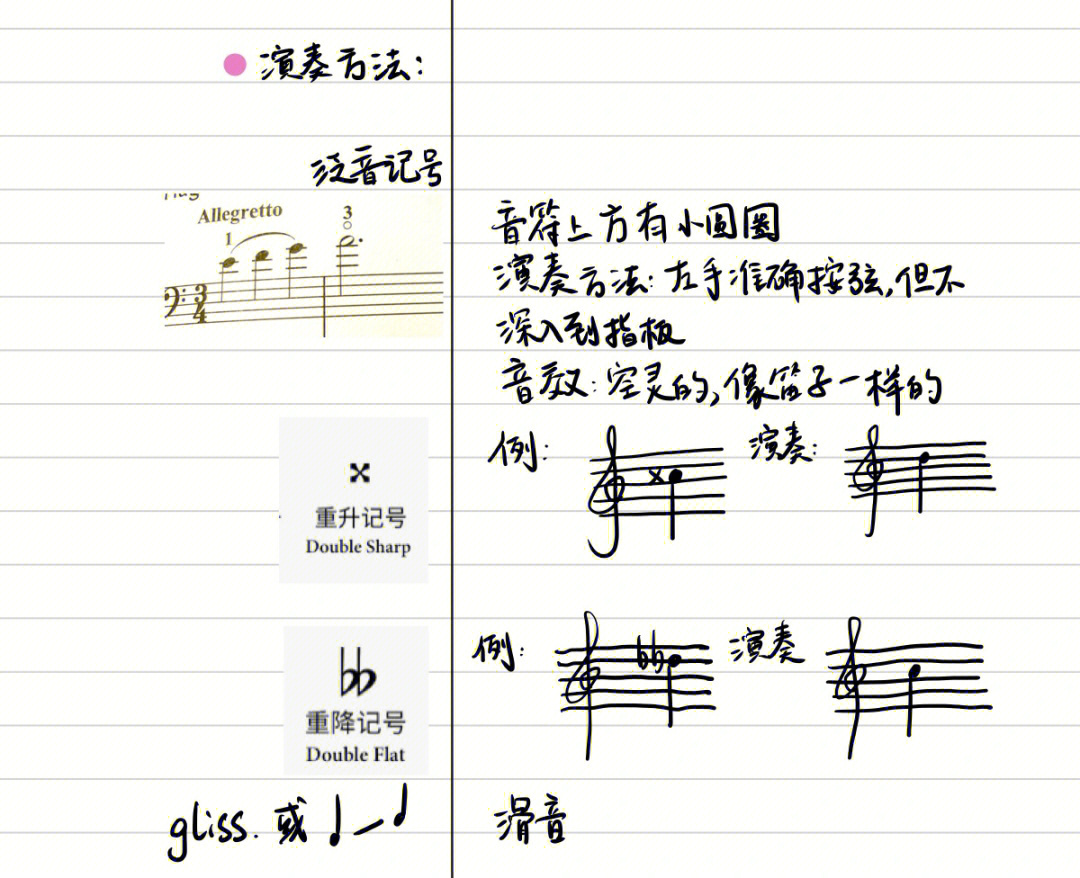 演奏方法:
泛音记号
Allegretto
3
1
3
4
音符上方有小圆圈
演奏方法:左手准确按弦,但不
深入到指板
音效:空灵的,像笛子一样的
例:
演奏:
重升记号
Double Sharp
例:
演奏
重降记号
Double Flat
gliss. 或
滑音